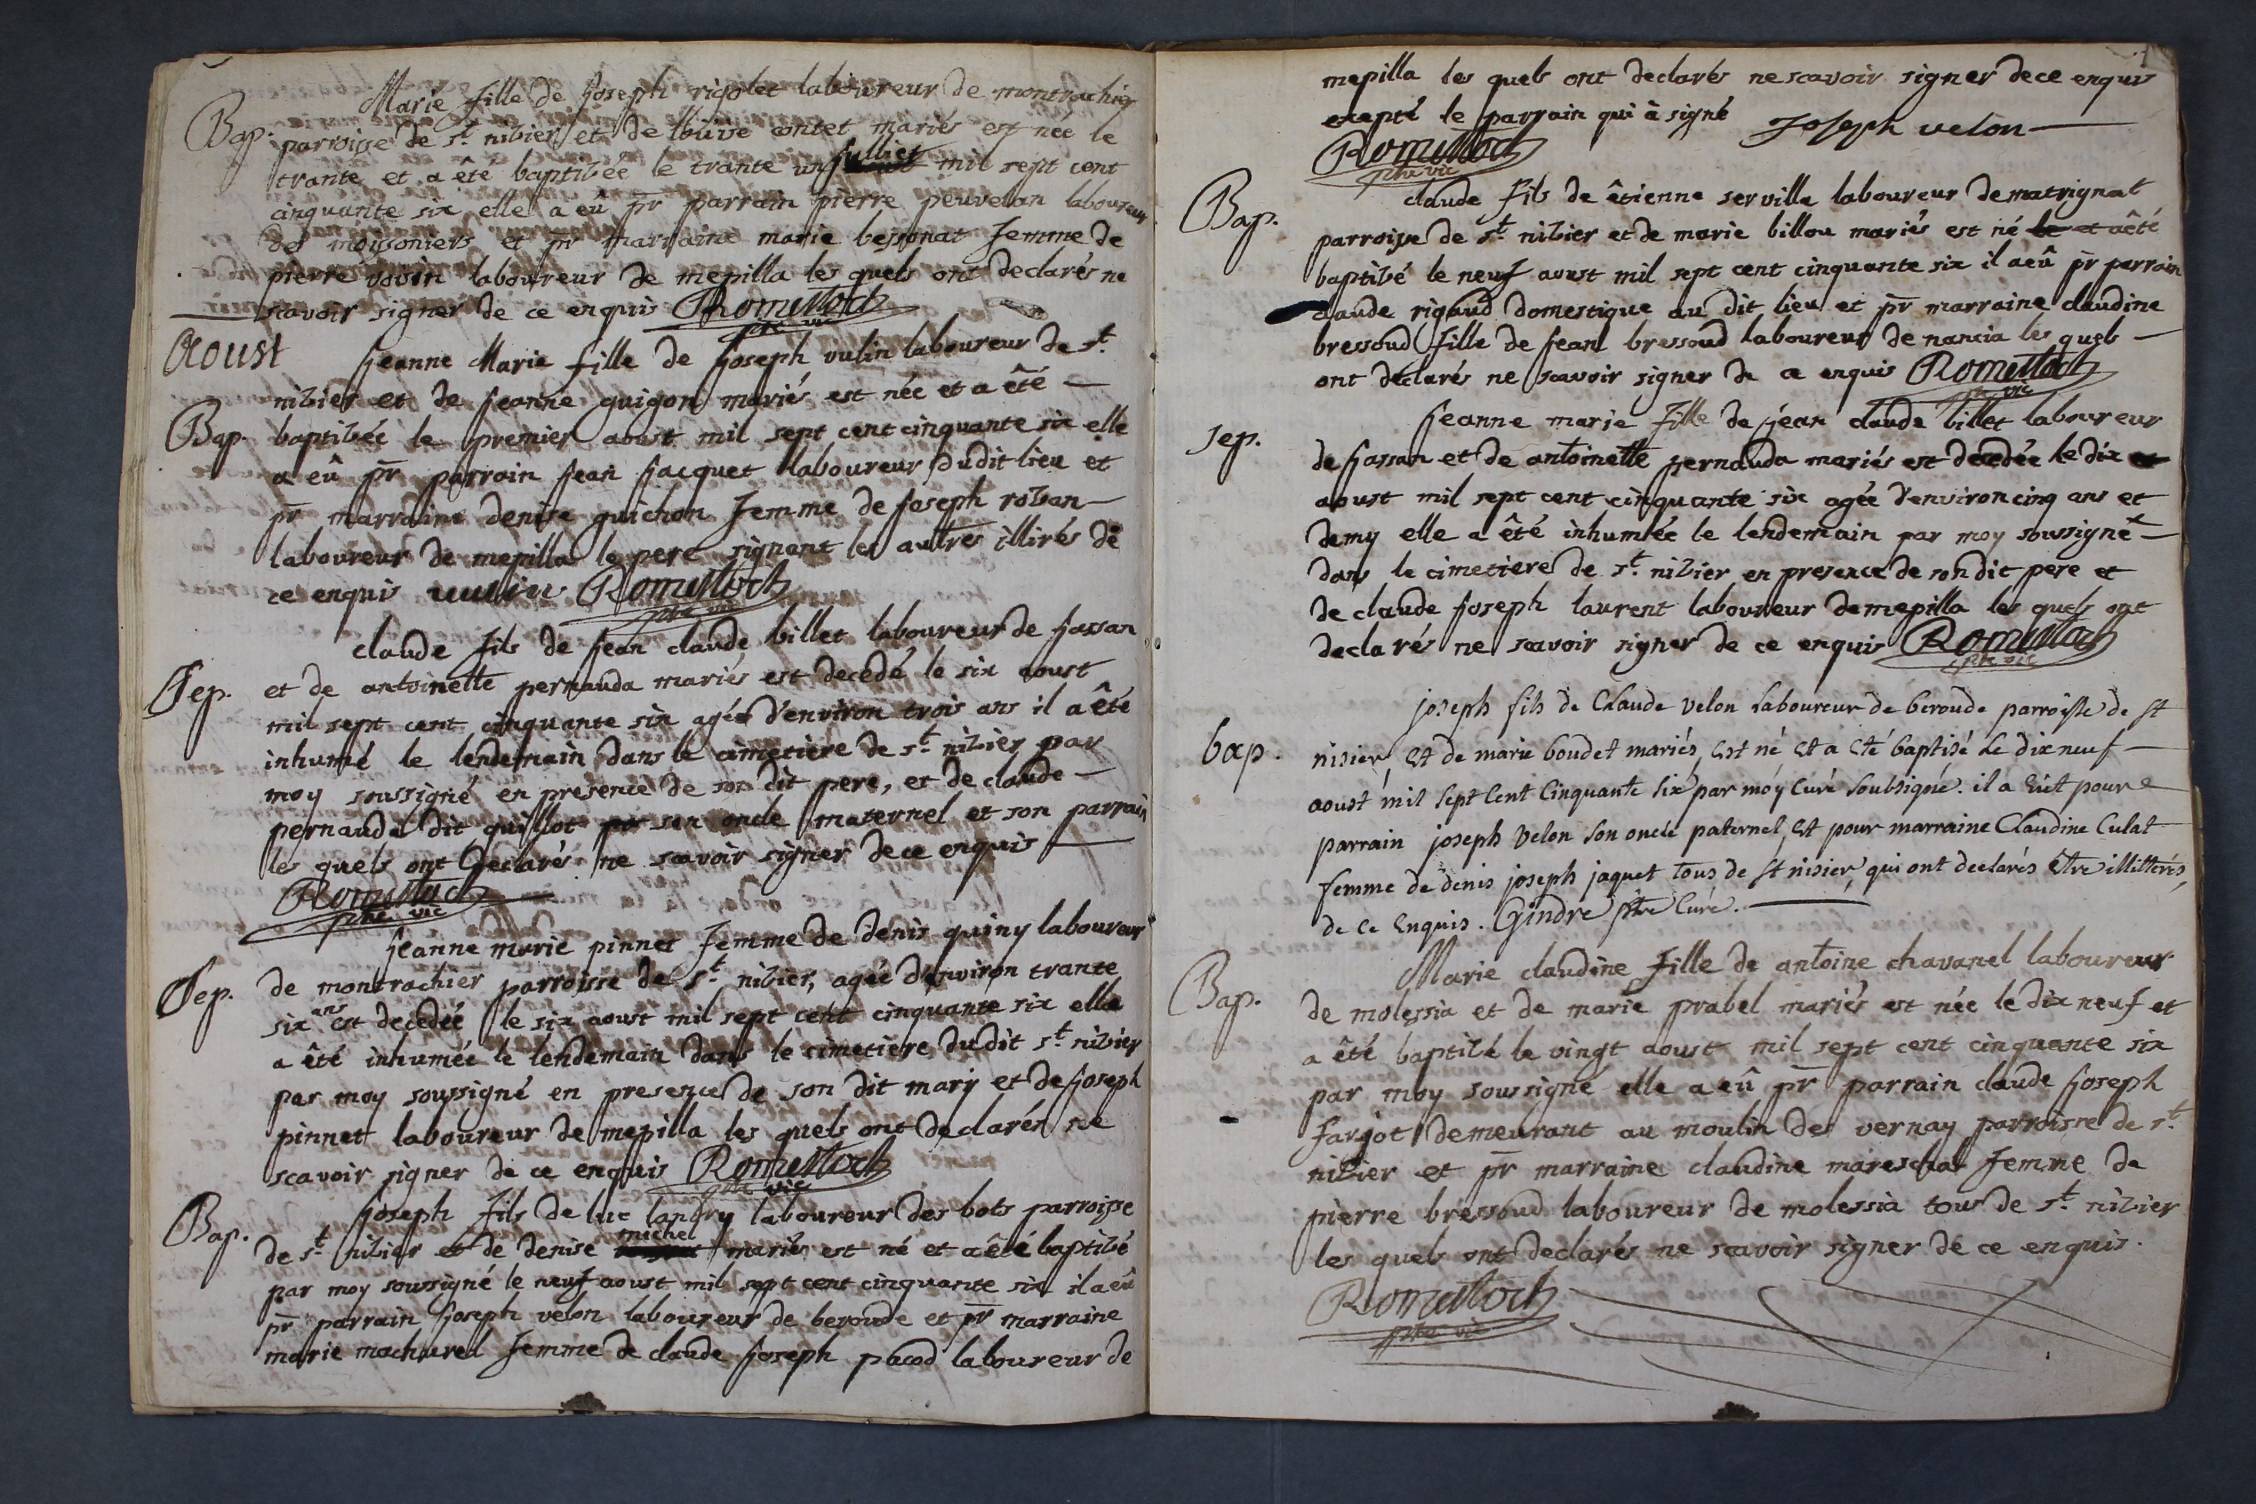 Marie fille de joseph rigolet laboureur de montrachier
Bap. parroisse de st. nibier et de louise contet mariés est née le
trante et a êté baptibée le trante un julliet mil sept cent
cinquante six elle a eû pr parrain pierre peuvelan laboureur
des moissoniers et pr marraine marie bessonat femme de
pierre vovin laboureur de mepilla les quels ont declarés ne
scavoir signer de ce enquis Romettoch
ptre vic
Aoust jeanne Marie fille de joseph vulin laboureur de st.
nibier et de jeanne guigon mariés est née et a êté
Bap. baptibée le premier aoust mil sept cent cinquante six elle
a eû pr parrain jean jacquet laboureur dudit lieu et
pr marraine denise guichon femme de joseph roban
laboureur de mepilla le pere signant les autres illirés de
ce enquis vulin Romettoch
ptre vic
claude fils de jean claude billet laboureur de jassan
Sep. et de antoinette pernauda mariés est decedé le six aoust
mil sept cent cinquante six agée d'environ trois ans il a êté
inhumé le lendemain dans le cimetiere de st. nibier par
moy soussigné en presence de son dit pere, et de claude
pernauda dit quillot son oncle maternel et son parrain
les quels ont declarés ne scavoir signer de ce enquis
Romettoch
ptre vic
jeanne marie pinnet femme de denis quiny laboureur
Sep. de montrachier parroisse de st. nibier, agée d'environ trante
six ans est decedée le six aoust mil sept cent cinquante six elle
a êté inhumée le lendemain dans le cimetiere dudit st. nibier
par moy soussigné en presence de son dit mary et de joseph
pinnet laboureur de mepilla les quels ont declarés ne
scavoir signer de ce enquis Romettoch
ptre vic
joseph fils de luc landry laboureur des bots parroisse
Bap. de st. nibier et de denise michel mariés est né et a êté baptibé
par moy soussigné le neuf aoust mil sept cent cinquante six il a eû
pr parrain joseph velon laboureur de beroude et pr marraine
marie machurel femme de claude joseph pacod laboureur de
mepilla les quels ont declarés ne scavoir signer de ce enquis
excepté le parrain qui à signé Joseph velon
Romettoch
ptre vic
Bap. claude fils de êtienne serville laboureur de matrignat
parroisse de st. nibier et de marie billou mariés est né le et a êté
baptibé le neuf aoust mil sept cent cinquante six il a eû pr parrain
claude rigaud domestique au dit lieu et pr marraine claudine
bressoud fille de jean bressoud laboureur de nancia les quels
ont declarés ne scavoir signer de ce enquis Romettoch
ptre vic
jeanne marie fille de jean claude billet laboureur
sep. de jassan et de antoinette pernauda mariés est decedée le dix
aoust mil sept cent cinquante six agée d'environ cinq ans et
demy elle a êté inhumée le lendemain par moy soussigné
dans le cimetiere de st. nibier en presence de son dit pere et
de claude joseph laurent laboureur de mepilla les quels ont
declarés ne scavoir signer de ce enquis Romettoch
ptre vic
joseph fils de Claude velon Laboureur de beroude parroisse de st
bap. nisier, Et de marie boudet mariés, Est né, Et a Eté baptisé Le dix neuf
aoust mil Sept Cent Cinquante Six par moy Curé Soubsigné. il a Eüt pour
parrain joseph Velon Son oncle paternel, Et pour marraine Claudine Culat
femme de denis joseph jaquet tous de st nisier, qui ont declarés être illitterés,
de Ce Enquis. Gindre ptre Curé.
Marie claudine fille de antoine chavanel laboureur
Bap. de molessia et de marie prabel mariés est née le dix neuf et
a êté baptibé le vingt aoust mil sept cent cinquante six
par moy soussigné elle a eû pr parrain claude joseph
farjot demeurant au moulin des vernay parroisse de st.
nibier et pr marraine claudine mareschal femme de
pierre bressoud laboureur de molessia tous de st. nibier
les quels ont declarés ne scavoir signer de ce enquis.
Romettoch
ptre vic